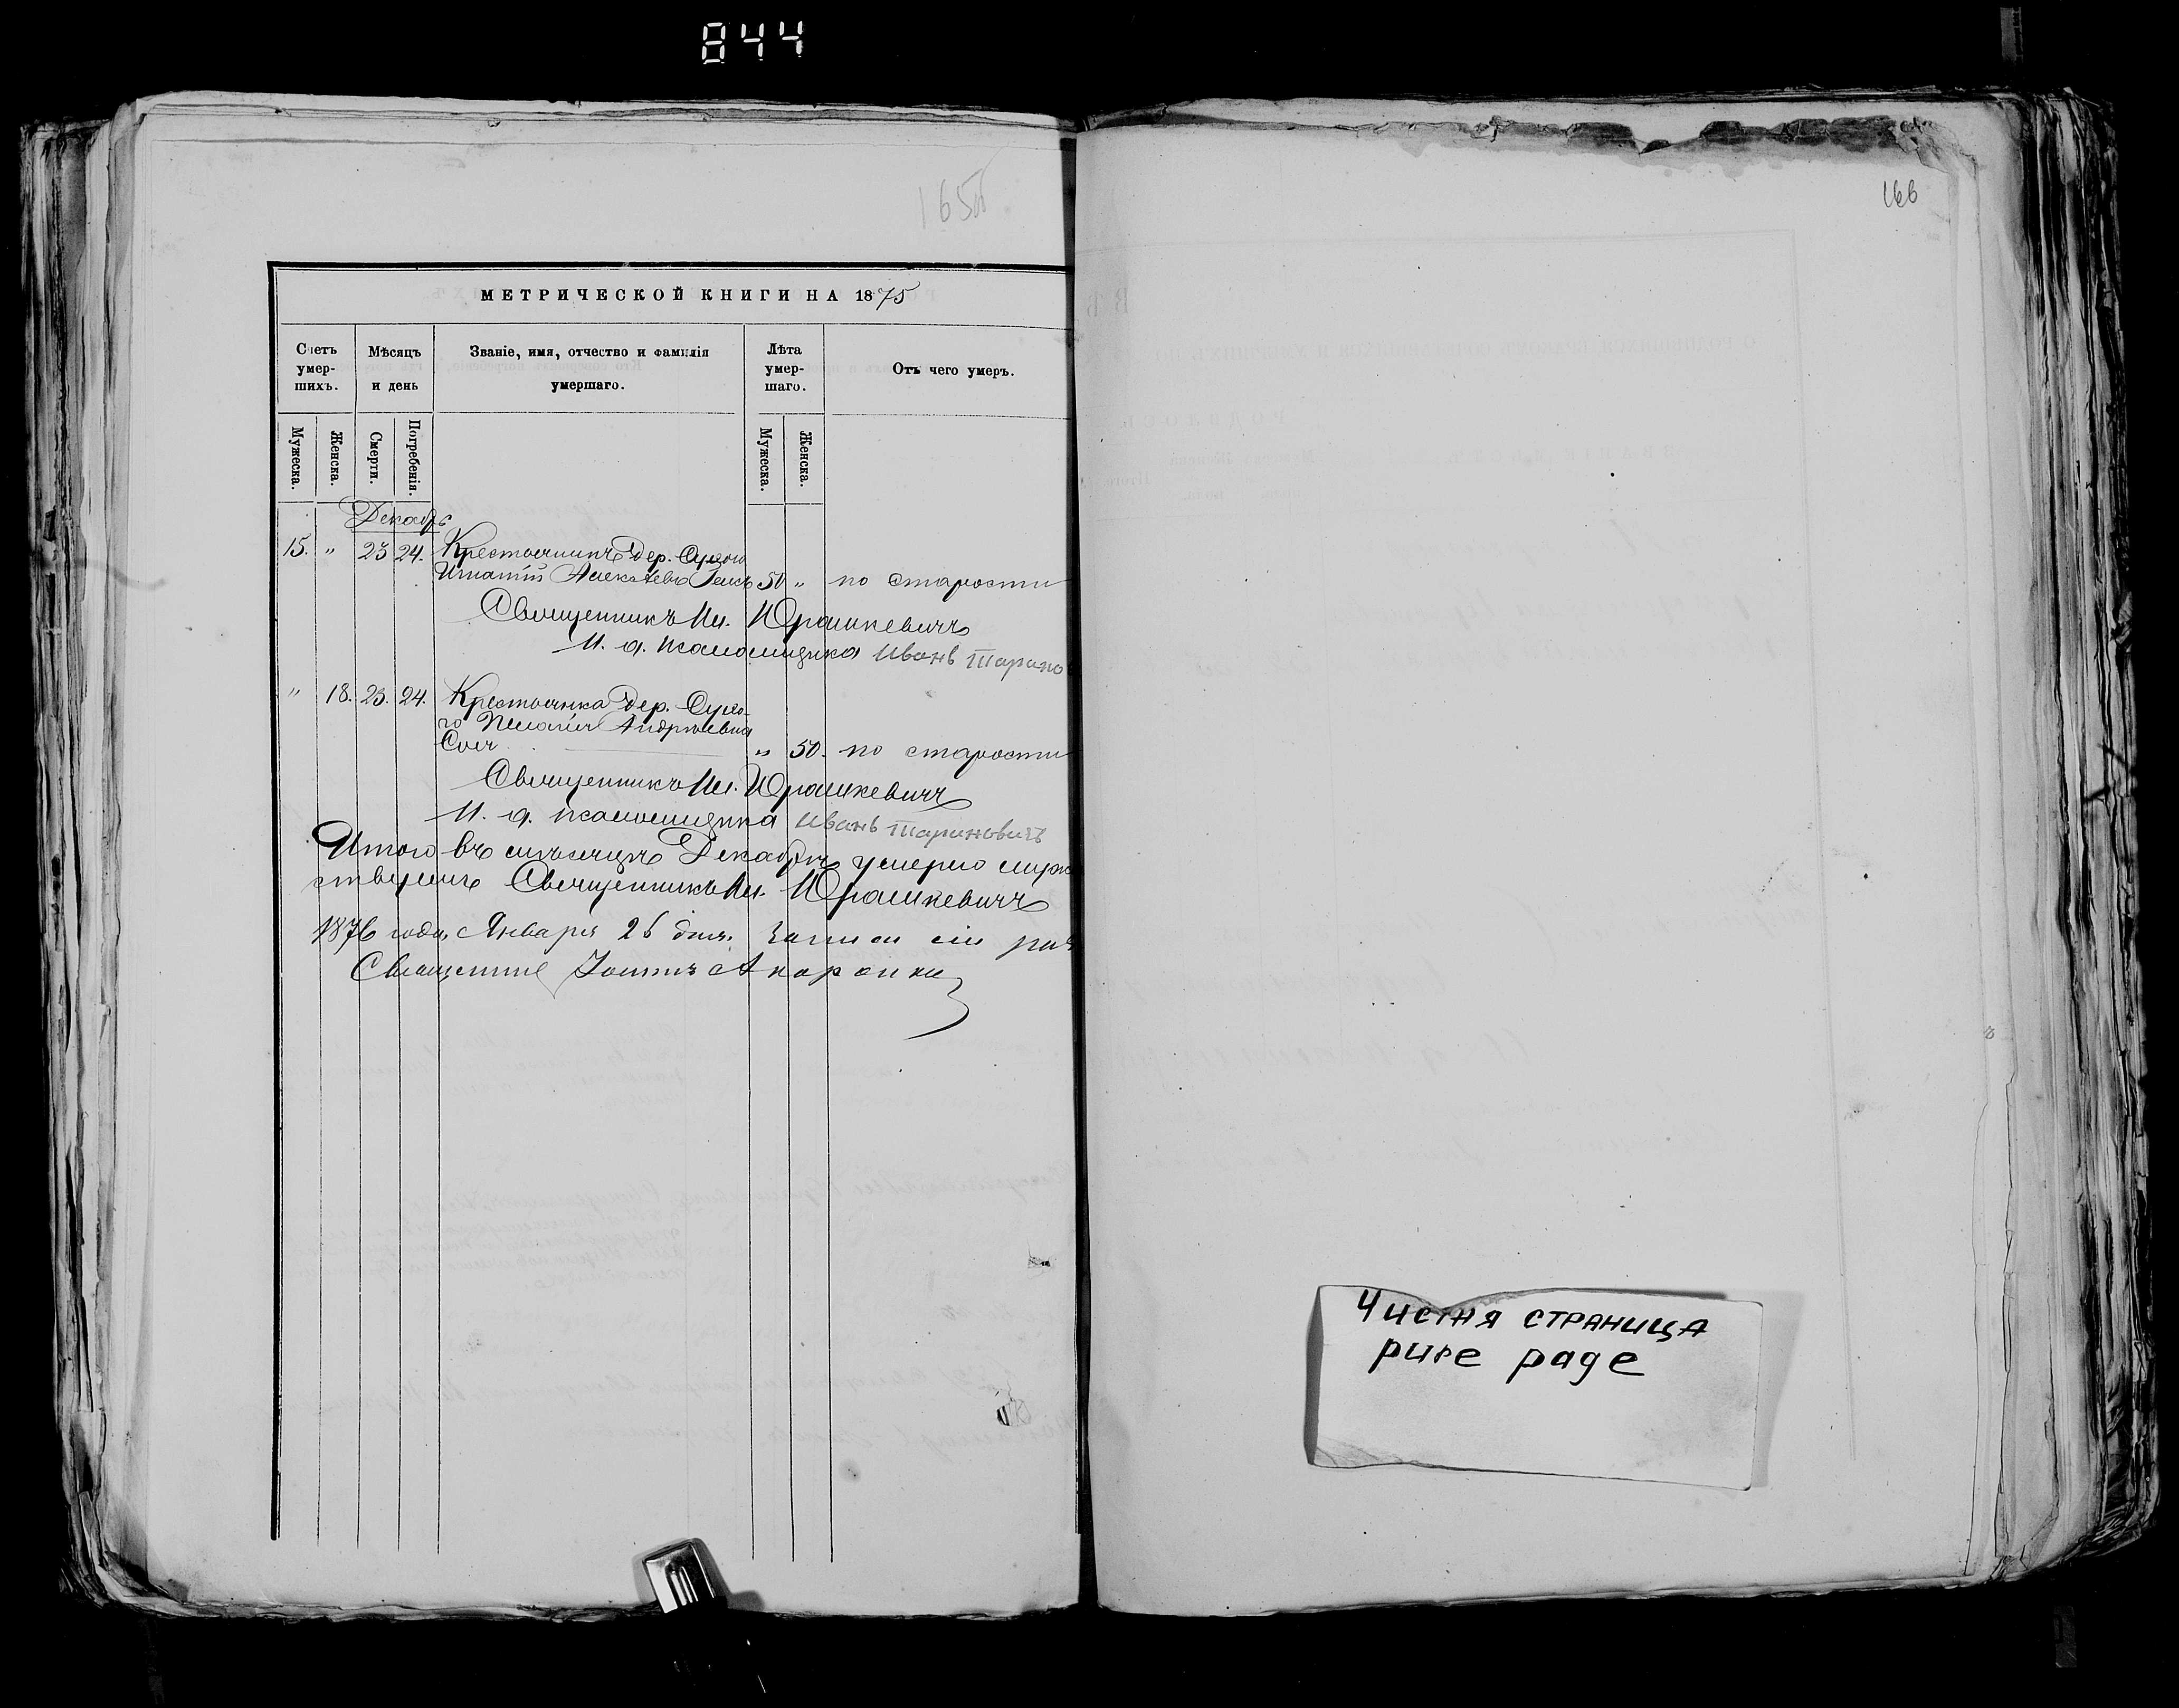 844
165об
166
МЕТРИЧЕСКОЙ КНИГИ НА 1875
Счетъ умер-шихъ.
Мѣсяцъ и день
Званіе, имя, отчество и фамилія умершаго.
Лѣта умер-шаго.
Отъ чего умеръ.
Мужеска.
Женска.
Смерти.
Погребенія.
Мужеска.
Женска.
Декабрь
15. " 23 24. Крестьянинъ дер. Сухого
Игнатій Алексѣевъ 50 " по старости
Священникъ Ил. Юрашкевичъ
И. д. псаломщика Иванъ
" 18. 23. 24. Крестьянка дер. Сухо-
го Пелагія Андреевна
" 50. по старости
Священникъ Ил. Юрашкевичъ
И. д. псаломщика Иванъ Тариновичъ
Итого въ мѣсяцѣ Декабрѣ умерло
Священникъ Ил. Юрашкевичъ
1876 года, Января 26 дня. Записи сіи
Священникъ Іоаннъ
Чистая страница
pure page